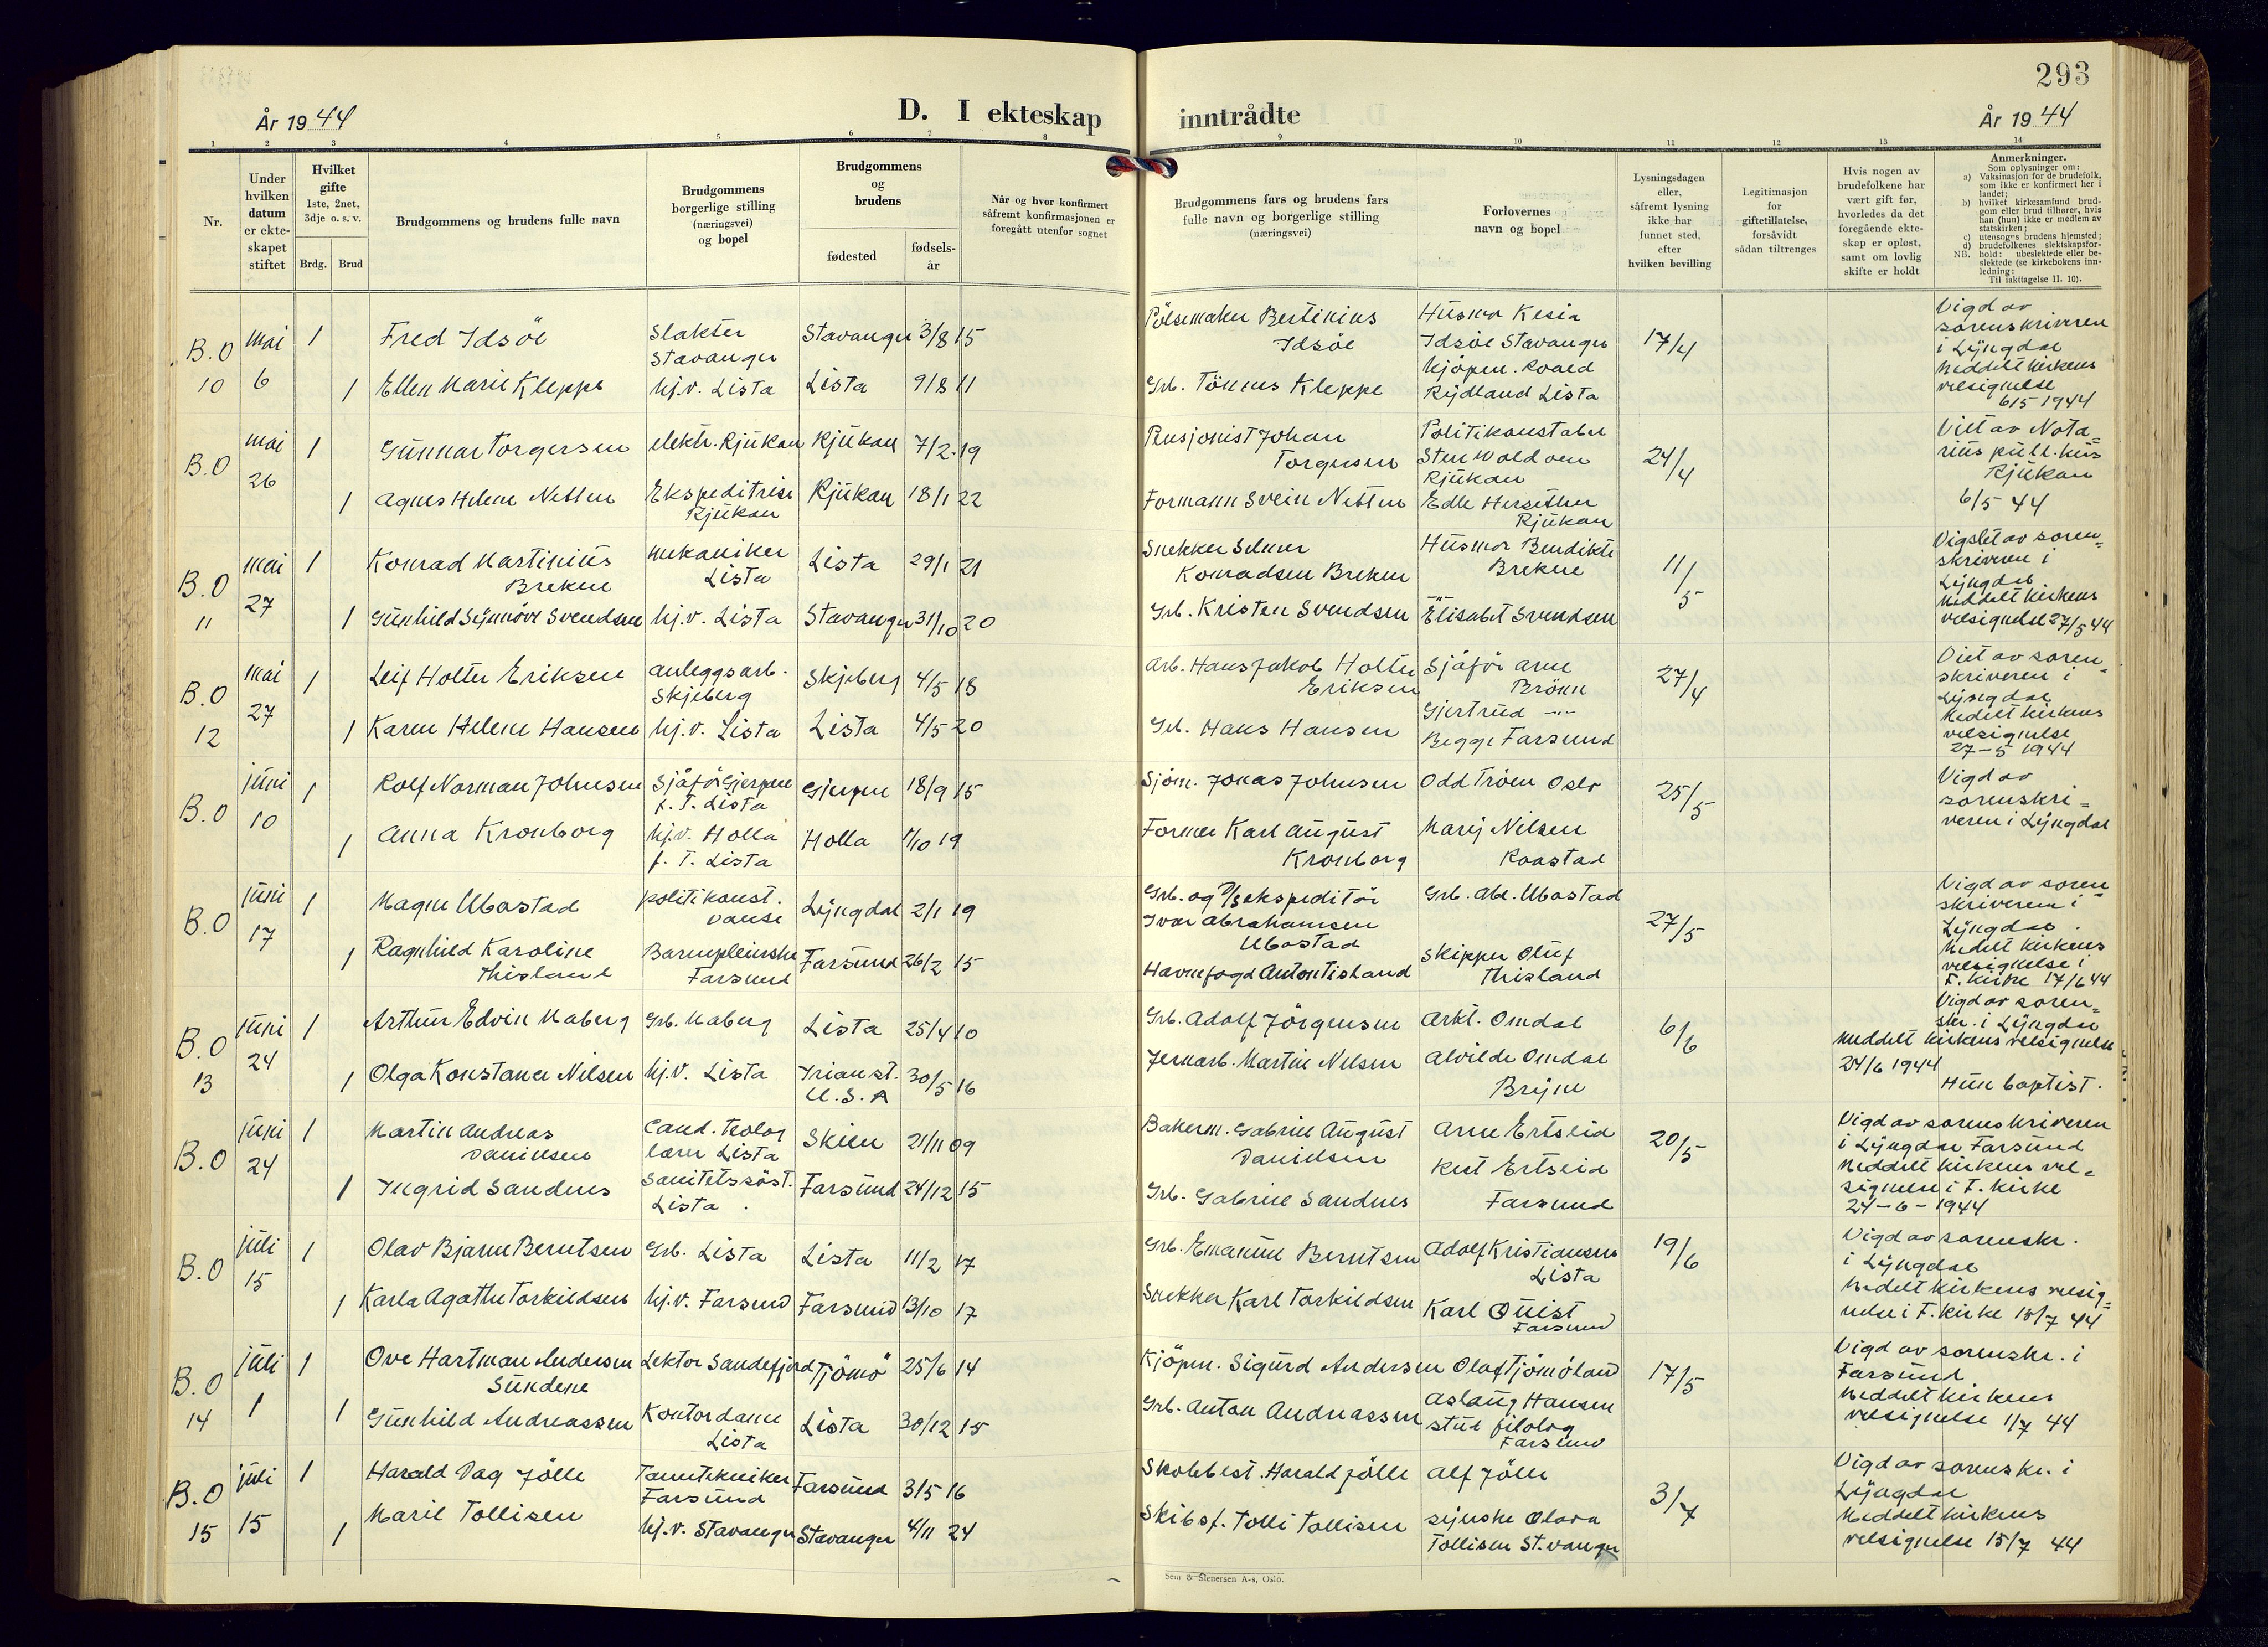 293
År 1944
D. I ekteskap inntrådte
År 1944
1 2 3 4 5 6 7 8 9 10 11 12 13 14
Nr.
Under hvilken datum er ekte-skapet stiftet
Hvilket gifte 1ste, 2net, 3dje o. s. v.
Brdg. Brud
Brudgommens og brudens fulle navn
Brudgommens borgerlige stilling (næringsvei) og bopel
Brudgommens og brudens
fødested
fødsels-år
Når og hvor konfirmert såfremt konfirmasjonen er foregått utenfor sognet
Brudgommens fars og brudens fars fulle navn og borgerlige stilling (næringsvei)
Forlovernes navn og bopel
Lysningsdagen eller, såfremt lysning ikke har funnet sted, efter hvilken bevilling
Legitimasjon for giftetillatelse, forsåvidt sådan tiltrenges
Hvis nogen av brudefolkene har vært gift før, hvorledes da det foregående ekte-skap er opløst, samt om lovlig skifte er holdt
Anmerkninger.
Som oplysninger om:
a) Vaksinasjon for de brudefolk, som ikke er konfirmert her i landet;
b) hvilket kirkesamfund brud-gom eller brud tilhører, hvis han (hun) ikke er medlem av statskirken;
c) utensogns brudens hjemsted;
d) brudefolkenes slektskapsfor-hold: ubeslektede eller be-slektede (se kirkebokens inn-ledning:
NB. Til iakttagelse II. 10).
B.O 10 mai 6 1 Fred Idsöe Slakter Stavanger Stavanger 3/8 15 Pölsemaker Bertinius Idsöe Husmor Kesia Idsöe Stavanger 17/4 Vigd av sorenskriveren i Lÿngdal
1 Ellen Marie Kleppe hj.v. Lista Lista 9/8 11 Grb. Tönnes Kleppe kjöpm. Roald Rydland Lista Meddelt kirkens velsignelse 6/5 1944
B.O mai 26 1 Gunnar Torgersen elektr. Rjukan Rjukan 7/2 19 Pensjonist Johan Torgersen Politikonstabel Sten Woldven Rjukan 24/4 Viet av Nota=rius publ.hus Rjukan
1 Agnes Helene Netten Ekspeditrise Rjukan Rjukan 18/1 22 Formann Svein Netten Edle Hersether Rjukan 6/5 44
B.O 11 mai 27 1 Konrad Martinius Brekne mekaniker Lista Lista 29/1 21 Snekker Selmer Konradsen Brekne Husmor Bendikte Brekne 11/5 Vigslet av soren=skriveren i Lyngdal
1 Gunhild Synnöve Svendsen hj.v. Lista Stavanger 31/10 20 Grb. Kristen Svendsen Elisabet Svendsen Meddelt kirkens velsignelse 27/5 44
B.O 12 mai 27 1 Leif Holter Eriksen anleggsarb. Skjeberg Skjeberg 4/5 18 Arb. Hans Jakob Holter Eriksen Sjåför Arne Brönn 27/4 Viet av soren=skriveren i Lyngdal
1 Karen Helene Hansen hj.v. Lista Lista 4/5 20 Grb. Hans Hansen Gjertrud -"- Begge Farsund Medelt kirkens velsignelse 27-5 1944
B.O juni 10 1 Rolf Norman Johnsen Sjåför Gjerpen f. T. Lista Gjerpen 18/9 15 Sjöm. Jonas Johnsen Odd Tröen Oslo 25/5 Vigd av sorenskri=veren i Lyngdal
1 Anna Kronborg hj.v. Holla f. T. Lista Holla 1/10 19 Former Karl August Kronborg Marij Nilsen Raastad
B.O juni 17 1 Magne Ubostad politikonst. Vanse Lyngdal 2/1 19 Grb. og D/S ekspeditör Ivar Abrahamsen Ubostad Grb. Abl. Ubostad 27/5 Vigd av soren skriveren i Lyngdal.
1 Ragnhild Karoline Thisland Barnepleierske Farsund Farsund 26/2 15 Havnefogd Anton Tisland Skipper Oluf Thisland Medelt kirkens velsignelse i F. kirke 17/6 44
B.O 13 juni 24 1 Arthur Edvin Maberg Grb. Maberg Lista 25/4 10 Grb. Adolf Jörgensen Arkt. Omdal 6/6 Vigd av soren=skr. i Lyngdal meddelt kirkens velsignelse 24/6 1944
1 Olga Konstanse Nilsen hj.v. Lista U.S.A 30/5 16 Jernarb. Martin Nilsen Alvilde Omdal Bryne Hun baptist.
B.O juni 24 1 Martin Andreas Danielsen Cand. teolog lærer Lista Skien 21/11 09 Bakerm. Gabriel August Danielsen Arne Ertseid 20/5 Vigd av sorenskriveren i Lyngdal Farsund
1 Ingrid Sandnes Sanitetssöst. Lista. Farsund 24/12 15 Grb. Gabriel Sandnes Ertseid Farsund Meddelt kirkens vel=signelse i F. kirke 24-6-1944
B.O juli 15 1 Olav Bjarne Berntsen Grb. Lista Lista 11/2 17 Grb. Emanuel Berntsen Adolf Kristiansen Lista 19/6 Vigd av sorenskr. i Lyngdal
1 Karla Agathe Torkildsen hj.v. Farsund Farsund 13/10 17 Snekker Karl Torkildsen Karl Quist Farsund Medelt kirkens velsig=nelse i F. kirke 15/7 44
B.O 14 juli 1 1 Ove Hartman Andersen Sundene Lektor Sandefjord Tjömö 25/6 14 Kjöpm. Sigurd Andersen Olaf Tjömöland 17/5 Vigd av sorenskr. i Farsund
1 Gunhild Andreassen Kontordame Lista Lista 30/12 15 Grb. Anton Andreassen Aslaug Hansen stud filolog Farsund Meddelt kirkens velsignelse 1/7 44
B.O 15 juli 15 1 Harald Dag Jölle Tanntekniker Farsund Farsund 3/5 16 Skolebest. Harald Jölle Alf Jölle 3/7 Vigd av sorenskr. i Lyngdal
1 Maril Tollisen hj.v. Stavanger Stavanger 4/11 24 Skibsf. Tolli Tollisen syerske Olava Tollisen St.vanger Meddelt kirkens velsignelse 15/7 44
Sem & Stenersen A-s, Oslo.